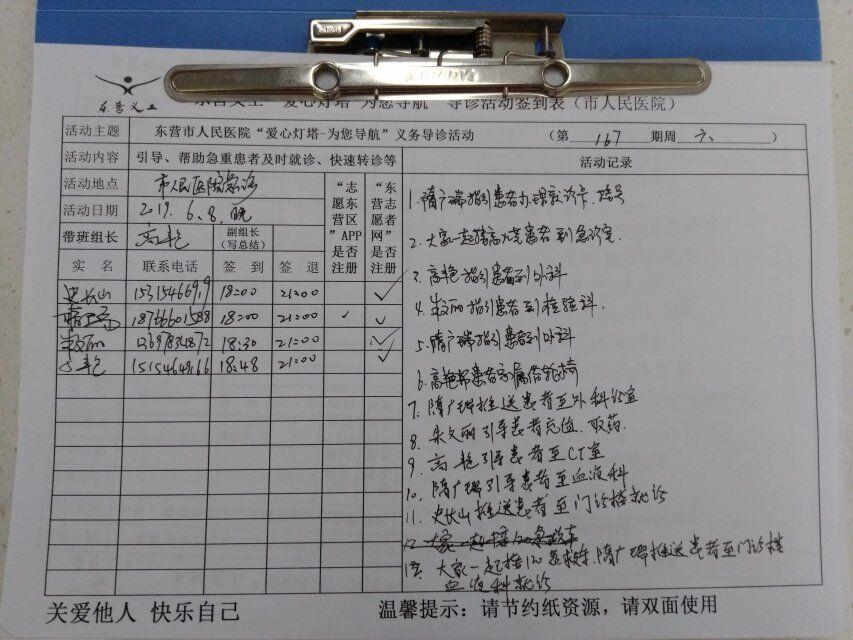 东营义工
东营义工“爱心灯塔-为您导航”导诊活动签到表（市人民医院）
活动主题 东营市人民医院“爱心灯塔-为您导航”义务导诊活动 （第 167 期周 六、 ）
活动内容 引导、帮助急重患者及时就诊、快速转诊等 活动记录
活动地点 市人民医院急诊 “志愿东营区”APP是否注册 “东营志愿者网”是否注册
活动日期 2019. 6. 8. 晚
带班组长 高艳 副组长（写总结）
实 名 联系电话 签 到 签 退
史长山 18:00 21:00 ✓
18766601588 18:00 21:00 ✓ ✓
朱文丽 18:30 21:00 ✓
高艳 18:48 21:00 ✓
1. 隋广瑞指引患者办理就诊卡、挂号
2. 大家一起接高烧患者到急诊室
3. 高艳指引患者到外科
4. 朱文丽指引患者到检验科.
5. 隋广瑞指引患者到外科
6. 高艳帮患者家属借轮椅
7. 隋广瑞推送患者至外科诊室
8. 朱文丽引导患者充值、取药.
9. 高艳引导患者至CT室
10. 隋广瑞引导患者至血液科
11. 史长山推送患者至门诊楼就诊
12. 大家一起接120急救车
大家一起接120急救车、隋广瑞推送患者至门诊楼
血液科就诊
关爱他人 快乐自己 温馨提示：请节约纸资源，请双面使用